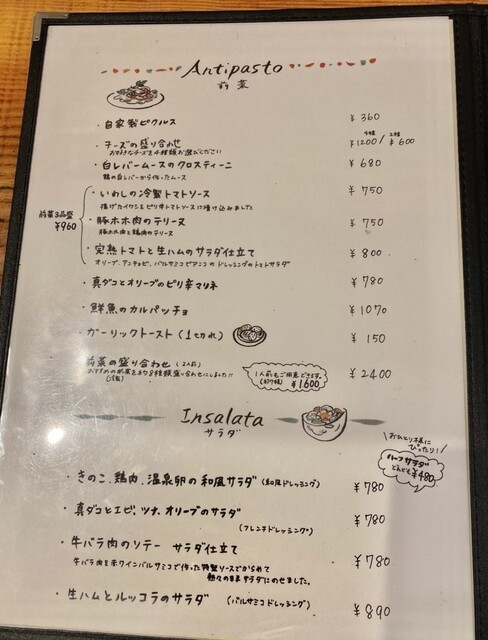 Antipasto
前菜
・自家製ピクルス ¥360
・チーズの盛り合わせ 4種 ¥1200 / 2種 ¥600
お好きなチーズを4種類お選びください
・白レバームースのクロスティーニ ¥680
鶏の白レバーから作ったムース
前菜3品盛 ¥960
・いわしの冷製トマトソース ¥750
揚げたイワシをピリ辛トマトソースに漬け込みました
・豚ホホ肉のテリーヌ ¥750
豚ホホ肉と鶏肉のテリーヌ
・完熟トマトと生ハムのサラダ仕立て ¥800
オリーブ、アンチョビ、バルサミコビアンコのドレッシングのトマトサラダ
・真ダコとオリーブのピリ辛マリネ ¥780
・鮮魚のカルパッチョ ¥1070
・ガーリックトースト (1切れ) ¥150
前菜の盛り合わせ (2人前) ¥2400
おすすめの前菜を8種類盛り合わせにしました!!
1人前もご用意できます。
¥1600
Insalata
サラダ
おひとり様に
ぴったり!
ハーフサラダ
¥480
・きのこ、鶏肉、温泉卵の和風サラダ (和風ドレッシング) ¥780
・真ダコとエビ、ツナ、オリーブのサラダ ¥780
(フレンチドレッシング)
・牛バラ肉のソテー サラダ仕立て ¥780
牛バラ肉を赤ワインバルサミコで作った特製ソースでからめて
熱々のままサラダにのせました。
・生ハムとルッコラのサラダ (バルサミコドレッシング) ¥890